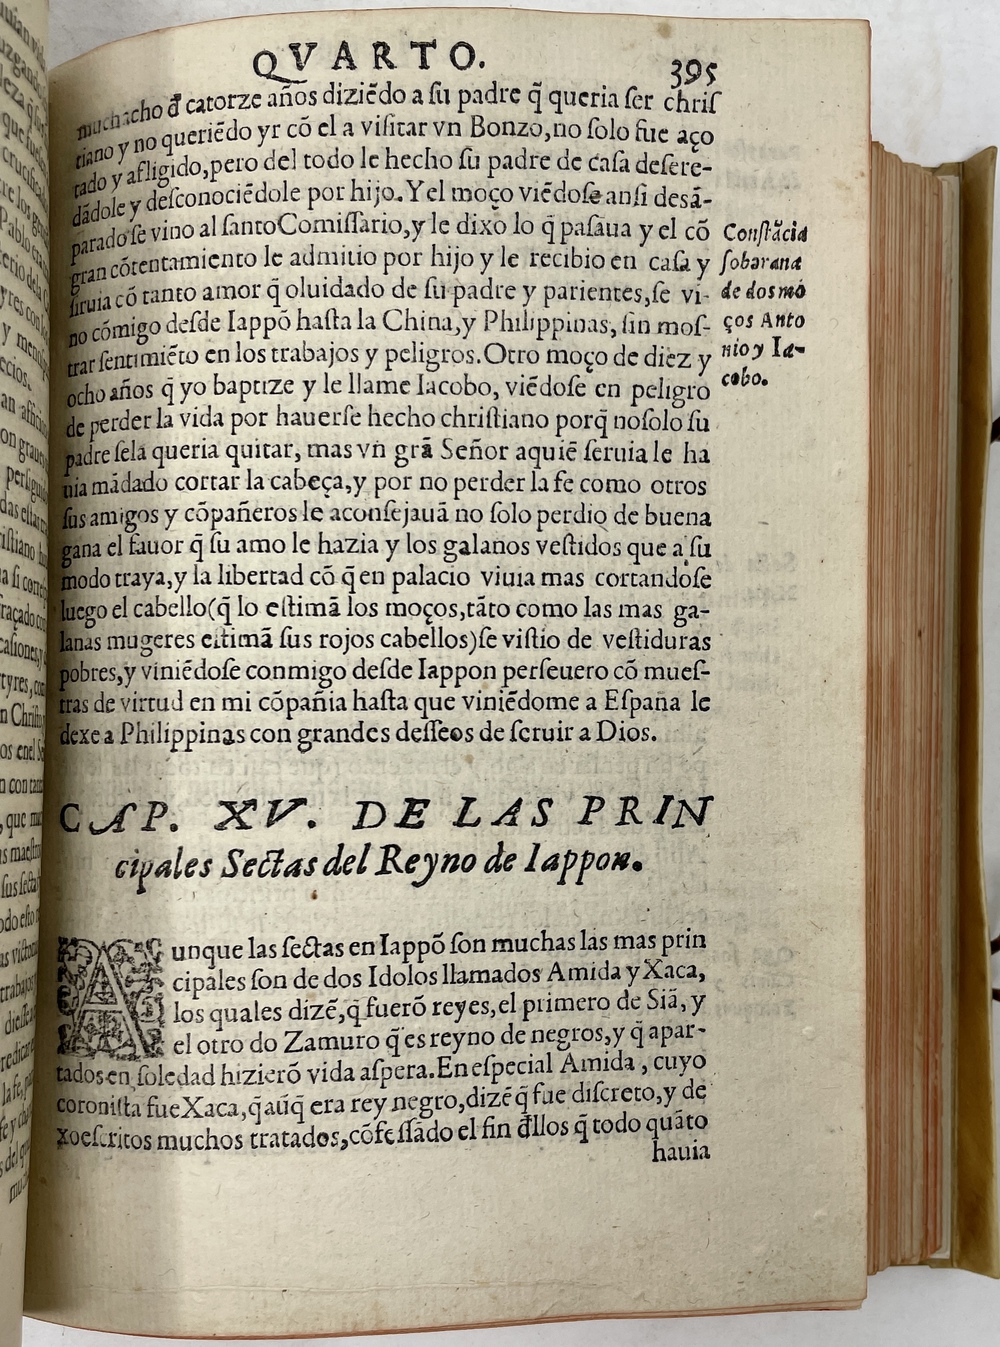 QVARTO. 395
muchacho đ catorze años diziẽdo a su padre q̃ queria ser chriſ
tiano y no queriẽdo yr cõ el a viſitar vn Bonzo, no ſolo fue aço
tado y afligido, pero del todo le hecho ſu padre de caſa deſere-
dãdole y deſconociẽdole por hijo. Y el moço viẽdoſe anſi deſã-
parado ſe vino al ſanto Comiſſario, y le dixo lo q̃ paſaua y el cõ
gran cõtentamiento le admitio por hijo y le recibio en caſa y
ſiruia cõ tanto amor q̃ oluidado de ſu padre y parientes, ſe vi-
no cõmigo deſde Iappõ haſta la China, y Philippinas, ſin moſ-
trar ſentimiẽto en los trabajos y peligros. Otro moço de diez y
ocho años q̃ yo baptize y le llame Iacobo, viẽdoſe en peligro
de perder la vida por hauerſe hecho chriſtiano porq̃ noſolo ſu
padre ſela queria quitar, mas vn grã Señor aquiẽ ſeruia le ha
uia mãdado cortar la cabeça, y por no perder la fe como otros
ſus amigos y cõpañeros le aconſejauã no ſolo perdio de buena
gana el fauor q̃ ſu amo le hazia y los galanos veſtidos que a ſu
modo traya, y la libertad cõ q̃ en palacio viuia mas cortandoſe
luego el cabello (q̃ lo eſtimã los moços, tãto como las mas ga-
lanas mugeres eſtimã ſus rojos cabellos) ſe viſtio de veſtiduras
pobres, y viniẽdoſe conmigo deſde Iappon perſeuero cõ mueſ-
tras de virtud en mi cõpañia haſta que viniẽdome a Eſpaña le
dexe a Philippinas con grandes deſſeos de ſeruir a Dios.
Conſtãcia
ſobarana
de dos mo
ços Anto
nio y Ia-
cobo.
CAP. XV. DE LAS PRIN
cipales Sectas del Reyno de Iappon.
Aunque las ſectas en Iappõ ſon muchas las mas prin
cipales ſon de dos Idolos llamados Amida y Xaca,
los quales dizẽ, q̃ fuerõ reyes, el primero de Siã, y
el otro do Zamuro q̃ es reyno de negros, y q̃ apar-
tados en ſoledad hizierõ vida aſpera. En eſpecial Amida, cuyo
coroniſta fue Xaca, q̃ aũq̃ era rey negro, dizẽ q̃ fue diſcreto, y de
xo eſcritos muchos tratados, cõfeſſãdo el fin đllos q̃ todo quãto
hauia